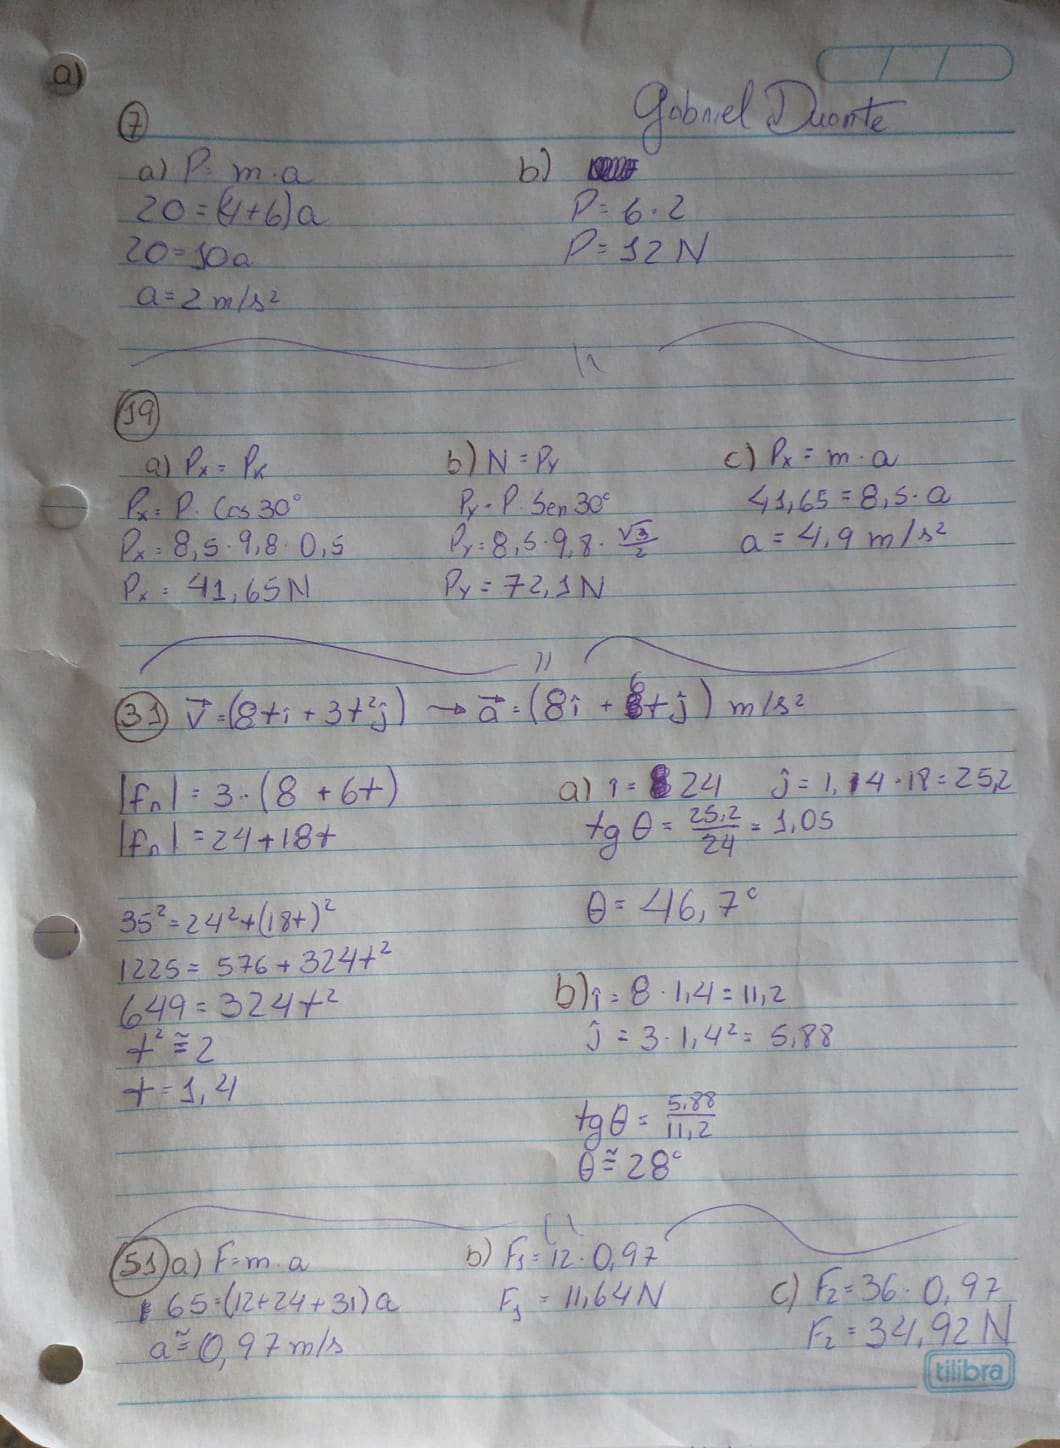 a)
Gabriel Duarte
7
a) P = m . a
20 = (4+6)a
20 = 10a
a = 2 m/s²
b)
P = 6 . 2
P = 12 N
19
a) Px = Px
Px = P . Cos 30°
Px = 8,5 . 9,8 . 0,5
Px = 41,65 N
b) N = Py
Py = P . Sen 30°
Py = 8,5 . 9,8 . √3/2
Py = 72,1 N
c) Px = m . a
41,65 = 8,5 . a
a = 4,9 m/s²
31 v⃗ = (8tî + 3t²ĵ) → a⃗ = (8î + 6tĵ) m/s²
|fn| = 3 . (8 + 6t)
|fn| = 24 + 18t
35² = 24² + (18t)²
1225 = 576 + 324t²
649 = 324t²
t² ≅ 2
t = 1,4
a) î = 24 ĵ = 1,4 . 18 = 25,2
tg θ = 25,2/24 = 1,05
θ = 46,7°
b) î = 8 . 1,4 = 11,2
ĵ = 3 . 1,4² = 5,88
tg θ = 5,88/11,2
θ ≅ 28°
51 a) F = m . a
65 = (12+24+31)a
a ≅ 0,97 m/s
b) F1 = 12 . 0,97
F1 = 11,64 N
c) F2 = 36 . 0,97
F2 = 34,92 N
tilibra